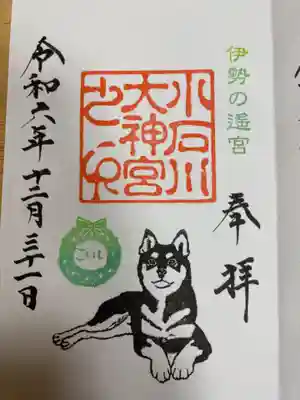 伊勢の遙宮
奉拝
小石川
大神宮
之印
こいし
令和六年十二月三十一日